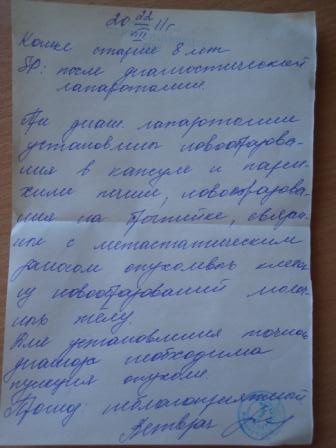 20 22/VII 11 г
Кошке старше 8 лет
после диагностической
лапаротомии.
При диаг. лапаротомии
установлены новообразова-
ния в капсуле и парен-
химе печени, новообразова-
ния на брыжейке, связан-
ные с метастатическим
заносом опухолевых клеток
из новообразований молоч-
ных желез.
Для установления точного
диагноза необходима
пункция опухоли.
Прогноз неблагоприятный
Ветврач